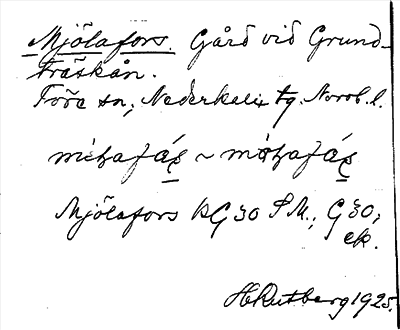 Mjölafors. Gård vid Grund-
träskån.
Töre sn, Nederkalix tg. Norrb. l.
Mjölafors KG 30 SM.; G 30;
ek.
H Rutberg 1925.